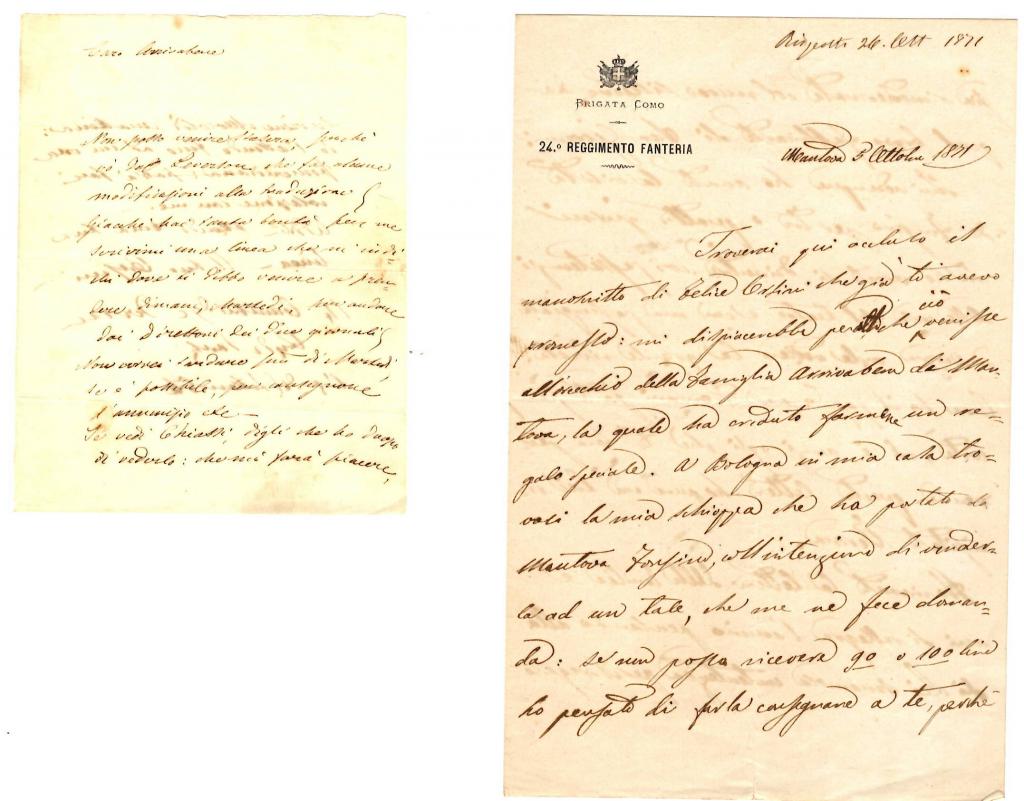 Caro Arrivabene
Non posso venire stasera, perchè
vi dal che far alcune
modificazioni alla traduzione
Giacchè hai tanta bontà per me
scrivimi una linea che mi indi
chi dove ti debbo venire a pren
dere dimani, Martedì, per andare
dai Direttori dei due giornali
Non vorrei tardare più di Martedì
se è possibile, per
l'annunzio &c —
Se vedi Chiassi, digli che ho
di vederlo: che mi farà piacere,
Risposto 26. Ott 1871
BRIGATA COMO
24.º REGGIMENTO FANTERIA
Mantova 5 Ottobre 1871
Troverai qui accluso il
manoscritto di Felice Orsini che già ti avevo
promesso: mi dispiacerebbe però che ciò venisse
all'orecchio della famiglia Arrivabene di Man-
tova, la quale ha creduto farmene un re-
galo speciale. A Bologna in mia casa tro-
vasi la mia schioppa che ha portato da
Mantova coll'intenzione di vender-
la ad un tale, che me ne fece doman-
da: se non possa ricevere 90 o 100 lire
ho pensato di farla consegnare a te, perchè